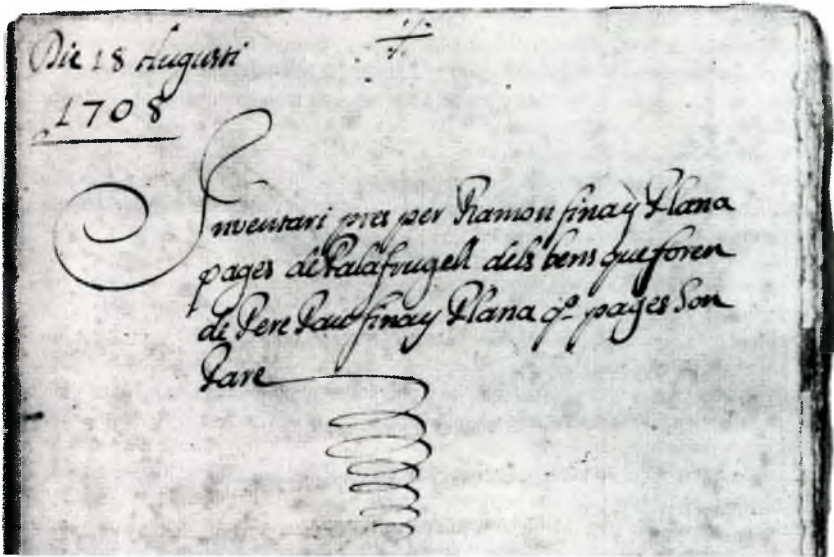 Die 18 Augusti
1708
Inventari pres per Ramon fina y Plana
pages de Palafrugell dels bens que foren
de Pere Pau fina y Plana qº pages Son
Pare